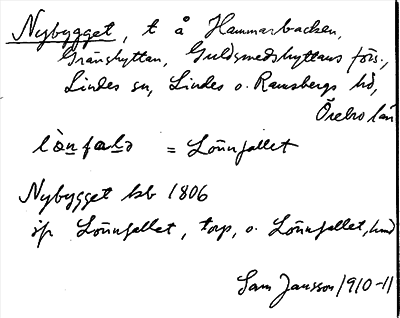 Nybygget, t å Hammarbacken,
Gränshyttan, Guldsmedshyttans förs.,
Lindes sn, Lindes o. Ramsbergs hd,
Örebro län
= Lönnfallet
Nybygget kb 1806
jfr Lönnfallet, torp, o. Lönnfallet,
Sam Jansson 1910-11